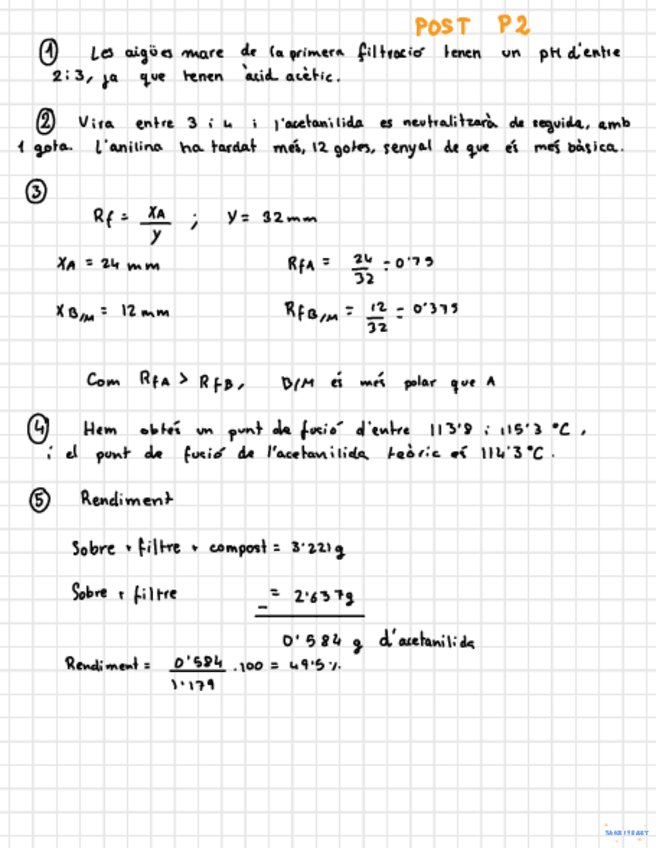 POST P2
① Les aigües mare de la primera filtració tenen un pH d'entre
2 i 3, ja que tenen àcid acètic.
② Vira entre 3 i 4 i l'acetanilida es neutralitzarà de seguida, amb
1 gota. L'anilina ha tardat més, 12 gotes, senyal de que és més bàsica.
③
Rf = XA / Y ; Y = 32 mm
XA = 24 mm RfA = 24 / 32 = 0'75
XB/M = 12 mm RfB/M = 12 / 32 = 0'375
Com RfA > RfB, B/M és més polar que A
④ Hem obtés un punt de fusió d'entre 113'8 i 115'3 °C,
i el punt de fusió de l'acetanilida teòric és 114'3 °C.
⑤ Rendiment
Sobre + filtre + compost = 3'221 g
Sobre + filtre = 2'637 g
–
0'584 g d'acetanilida
Rendiment = 0'584 / 1'179 · 100 = 49'5 %